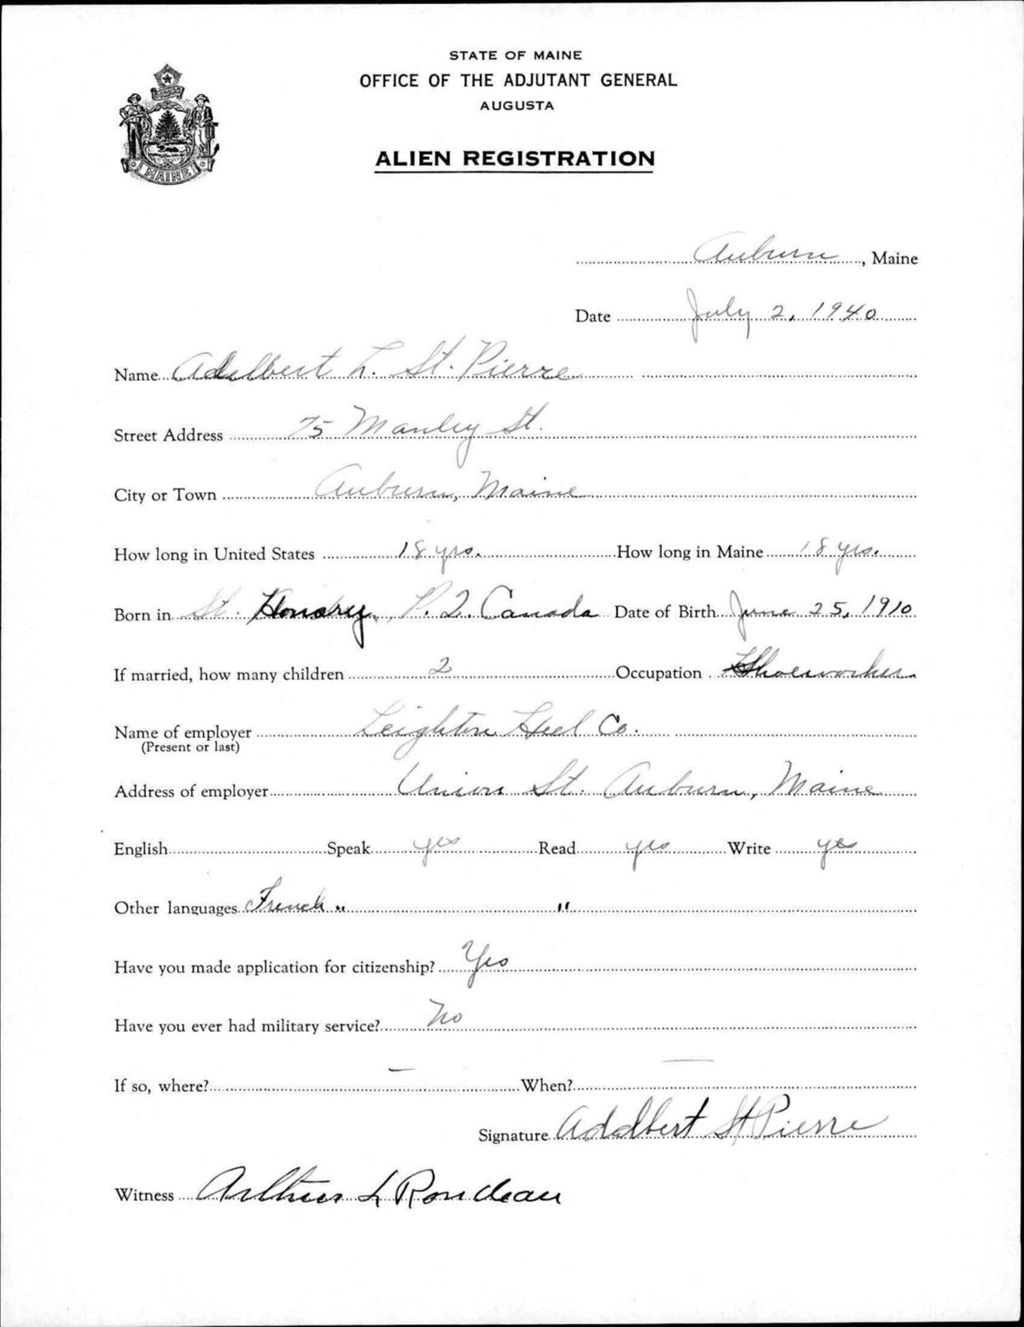 STATE OF MAINE
OFFICE OF THE ADJUTANT GENERAL
AUGUSTA
ALIEN REGISTRATION
MAINE
Auburn, Maine
Date July 2, 1940
Name Adelbert L. St. Pierre
Street Address 75 Manley St.
City or Town Auburn, Maine
How long in United States 18 yrs. How long in Maine 18 yrs.
Born in St. P. Q. Canada Date of Birth June 25, 1910
If married, how many children 2 Occupation Shoeworker
Name of employer Leighton Heel Co.
(Present or last)
Address of employer Union St. Auburn, Maine
English Speak yes Read yes Write yes
Other languages French " "
Have you made application for citizenship? Yes
Have you ever had military service? No
If so, where? — When? —
Signature Adelbert St Pierre
Witness Arthur L Rondeau